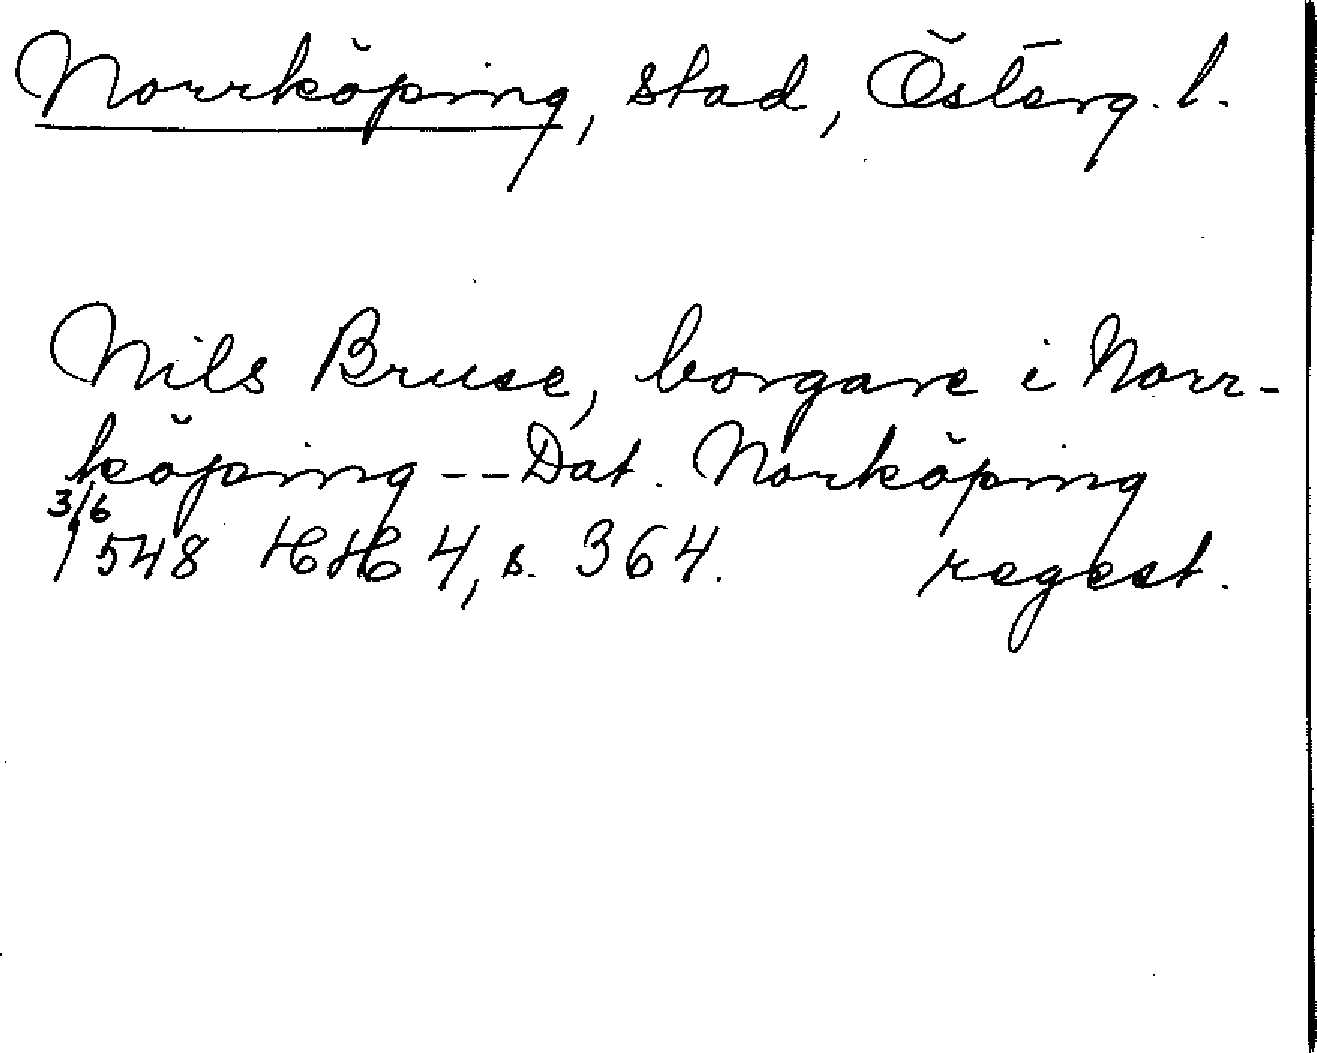 Norrköping, stad, Österg. l.
Nils Bruse, borgare i Norr-
köping -- Dat. Norköping
3/6
1548 HH 4, s. 364. regest.